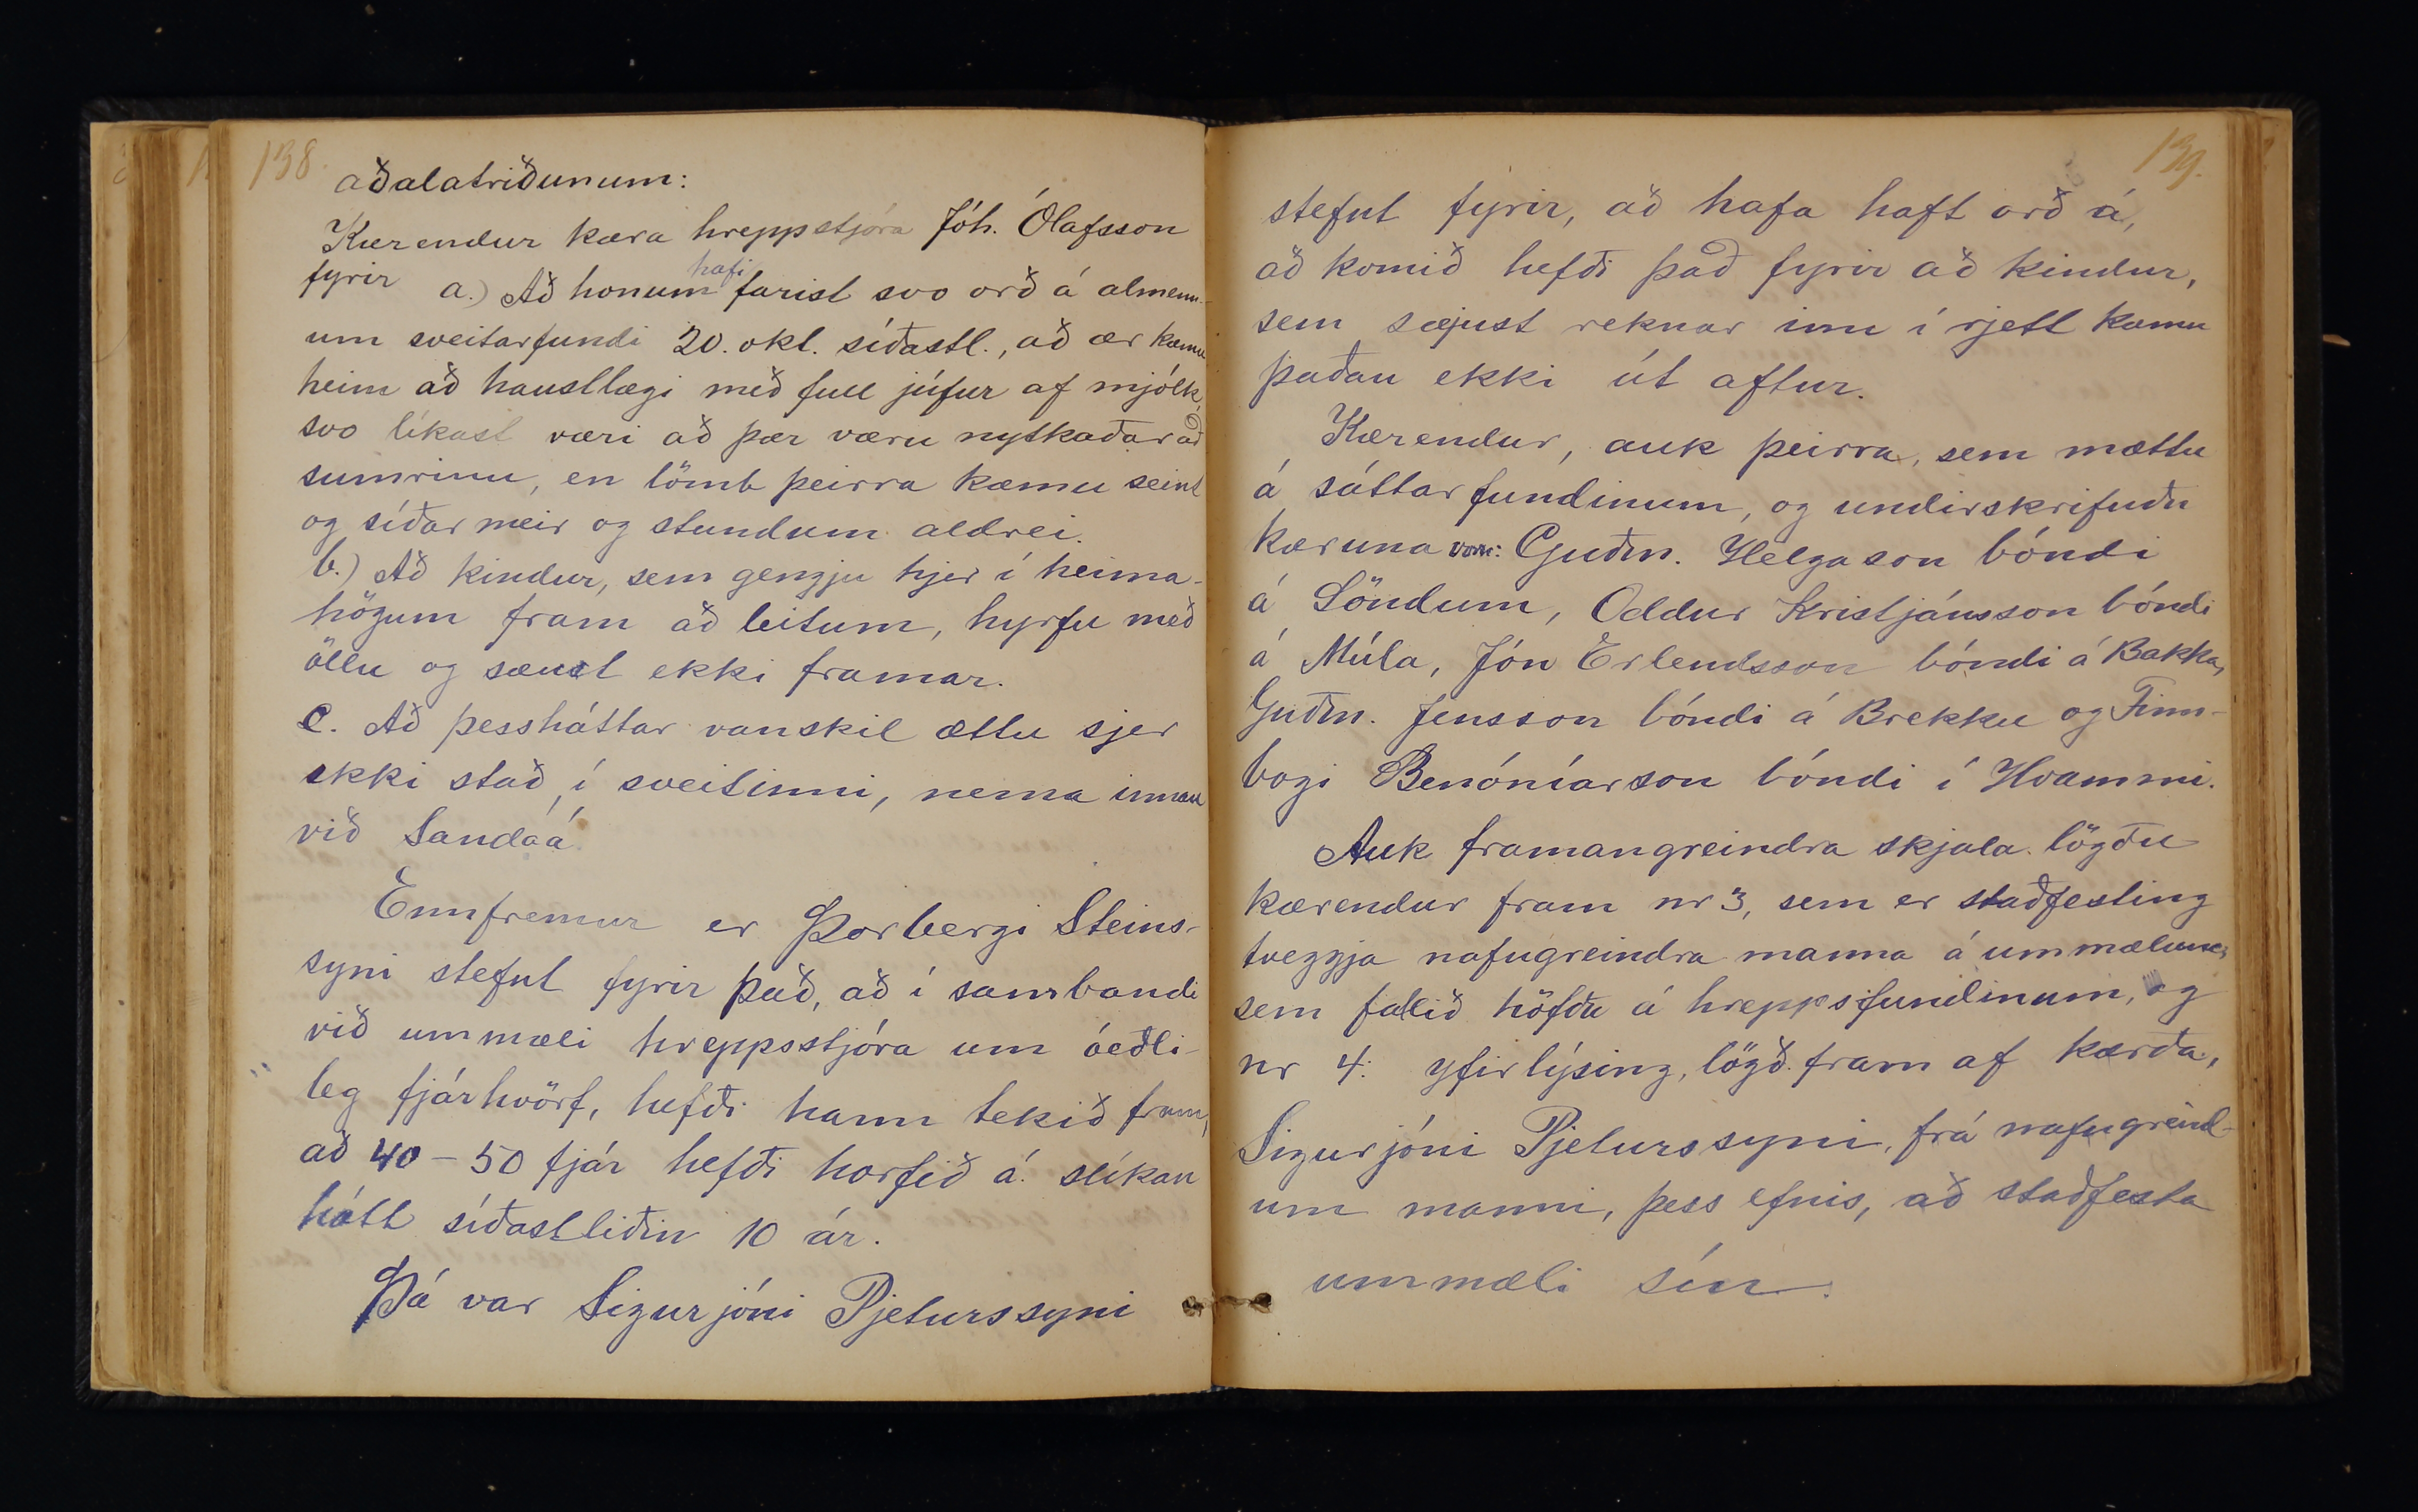 138.
aðalatriðunum:
Kærendur kæra hreppstjóra Jóh. Ólafsson
fyrir a.) Að honum hafi farist svo orð á almenn-
um sveitarfundi 20. okt. síðastl., að ær kæmu
heim að haustlægi með full júfur af mjólk,
svo líkast væri að þær væru nytkaðar að
sumrinu, en lömb þeirra kæmu seint
og síðar meir og stundum aldrei.
b.) Að kindur, sem gengju hjer í heima-
högum fram að leitum, hyrfu með
öllu og sæust ekki framar.
c. Að þessháttar vanskil ættu sjer
ekki stað, í sveitinni, nema innan
við Sandaá.
Ennfremur er Þorbergi Steins-
syni stefnt fyrir það, að í sambandi
við ummæli hreppsstjóra um óeðli-
leg fjárhvörf, hefði hann tekið fram,
að 40-50 fjár hefði horfið á slíkan
hátt síðastliðin 10 ár.
Þá var Sigurjóni Pjeturssyni
139.
stefnt fyrir, að hafa haft orð á,
að komið hefði það fyrir að kindur,
sem sæjust reknar inn í rjett kæmu
þaðan ekki út aftur.
Kærendur, auk þeirra, sem mættu
á sáttarfundinum, og undirskrifuðu
kæruna voru: Guðm. Helgason bóndi
á Söndum, Oddur Kristjánsson bóndi
á Múla, Jón Erlendsson bóndi á Bakka,
Guðm. Jensson bóndi á Brekku og Finn-
bogi Benóníarson bóndi í Hvammi.
Auk framangreindra skjala lögðu
kærendur fram nr 3, sem er staðfesting
tveggja nafngreindra manna á ummælum,
sem fallið höfðu á hreppsfundinum, og
nr 4: yfirlýsing, lögð fram af kærða,
Sigurjóni Pjeturssyni, frá nafngreind-
um manni, þess efnis, að staðfesta
ummæli sín.